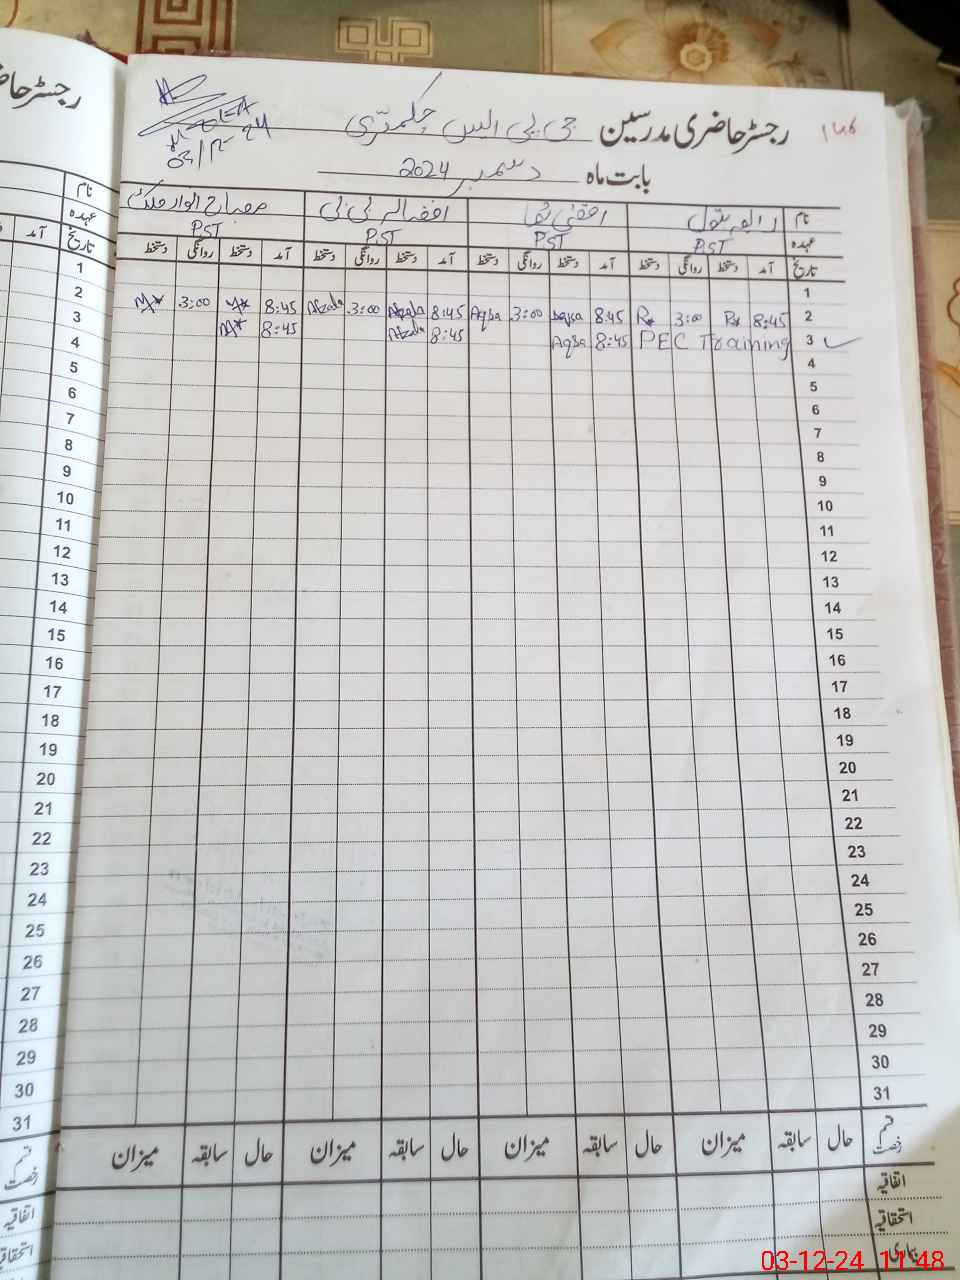 رجسٹر حاضری مدرسین جی پی ایس 146
بابت ماہ دسمبر 2024
03/12-24
نام
عہدہ PST PST PST PST
تاریخ آمد دستخط روانگی دستخط آمد دستخط روانگی دستخط آمد دستخط روانگی دستخط آمد دستخط روانگی دستخط
1
2 8:45 R* 3:00 R* 8:45 Aqsa 3:00 Aqsa 8:45 Afzala 3:00 Afzala 8:45 3:00
3 PEC Training 8:45 Aqsa 8:45 Afzala 8:45
4
5
6
7
8
9
10
11
12
13
14
15
16
17
18
19
20
21
22
23
24
25
26
27
28
29
30
31
قسم رخصت حال سابقہ میزان حال سابقہ میزان حال سابقہ میزان حال سابقہ میزان
اتفاقیہ
استحقاقیہ
بیماری
رجسٹر حاضری
نام
عہدہ
تاریخ آمد
1
2
3
4
5
6
7
8
9
10
11
12
13
14
15
16
17
18
19
20
21
22
23
24
25
26
27
28
29
30
31
قسم رخصت
اتفاقیہ
استحقاقیہ
03-12-24 11:48